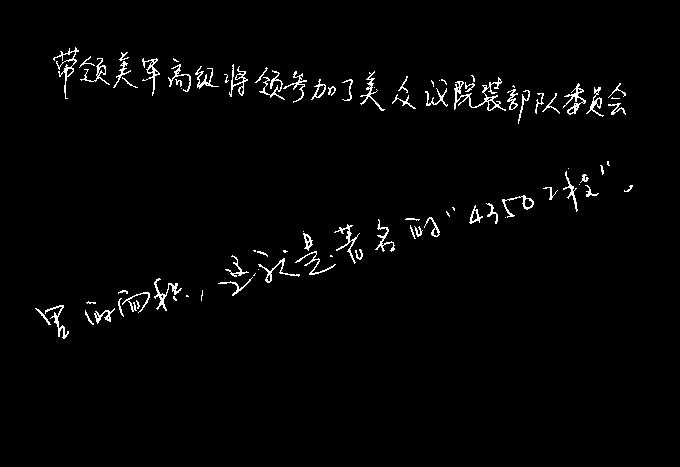 带领美军高级将领参加了美众议院装部队委员会
里的面积，这就是著名的“4350工程”。